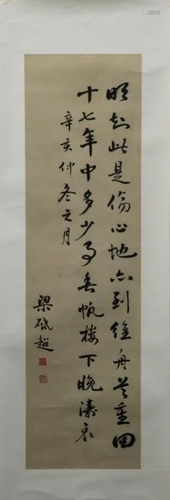 明知此是傷心地亦到維舟首重回
十七年中多少事春帆樓下晚濤哀
辛亥仲冬之月
梁啟超